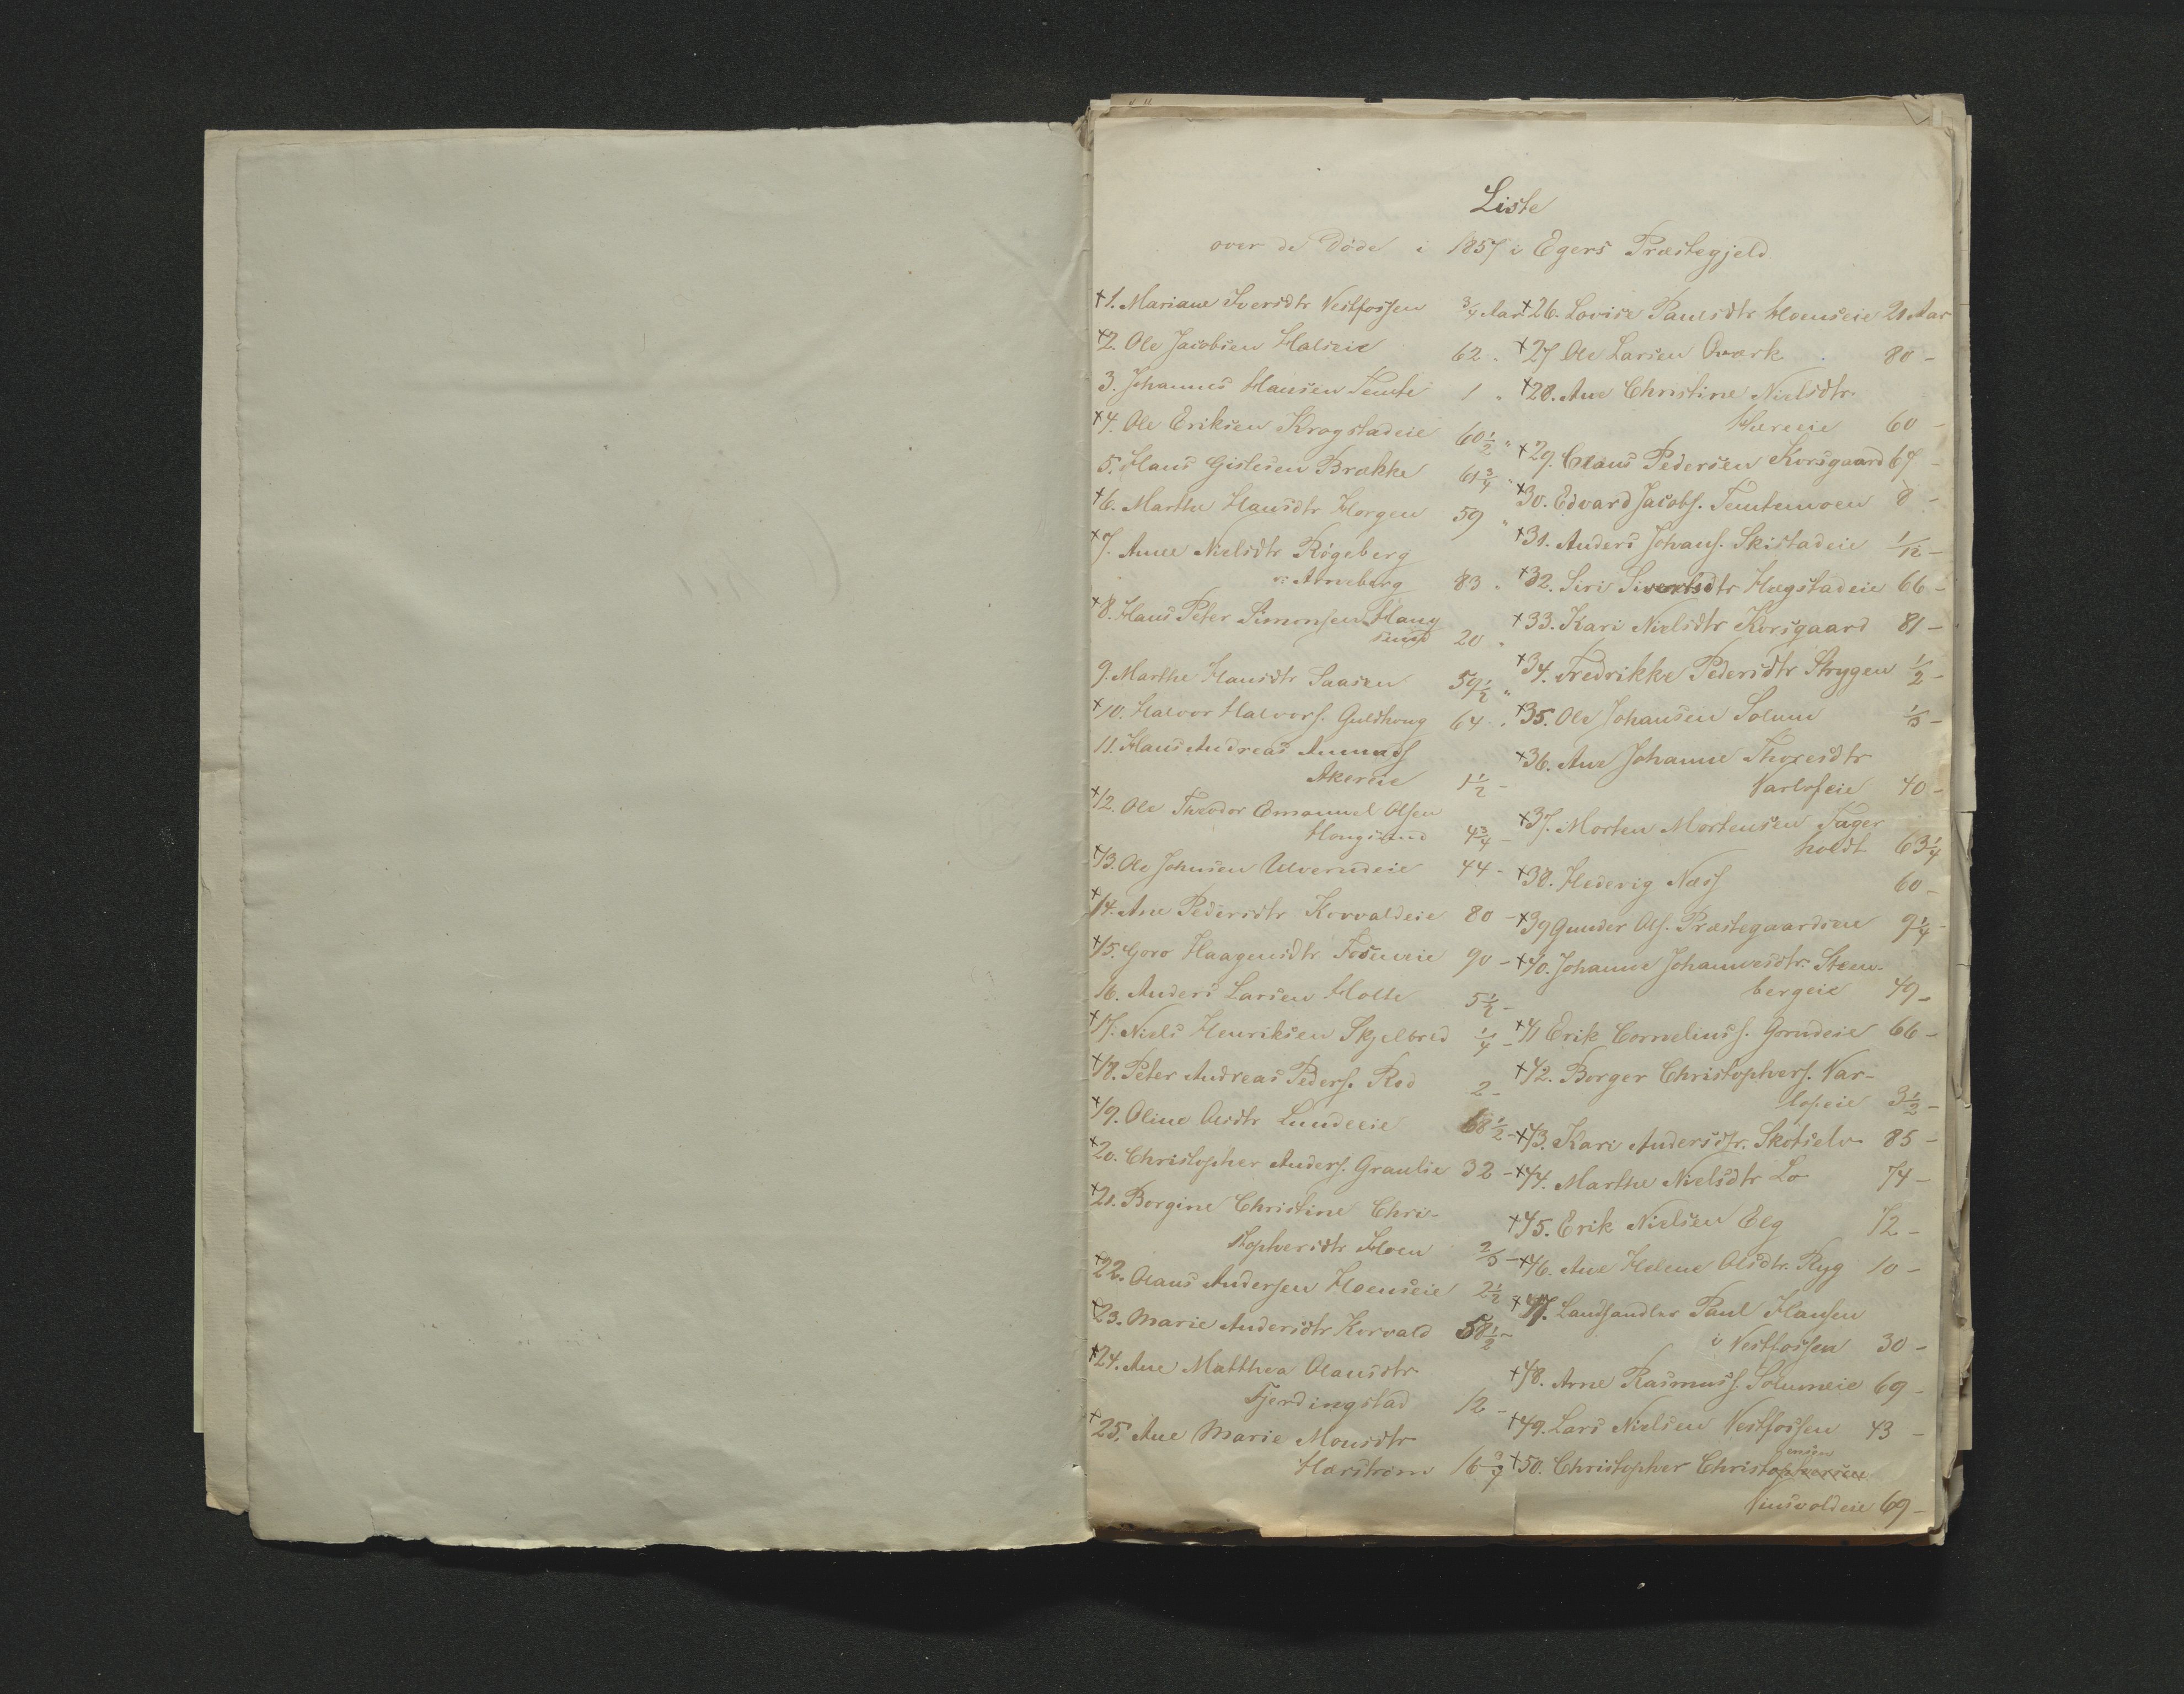 Liste
over de Døde i 1857 i Egers Præstegjeld
+1. Mariane Iversdtr Vestfossen 3/4 Aar
+2. Ole Jacobsen Halseie 62 "
3. Johannes Hansen Temte 1 "
+4. Ole Eriksen Krogstadeie 60 1/2 "
5. Hans Gislesen Brække 61 3/4 "
+6. Marthe Hansdtr Horgen 59 "
+7. Anne Nielsdtr Røgeberg
v: Arneberg 83 "
+8. Hans Peter Simonsen Houg
sund 20 "
9. Marthe Hansdtr Saasen 59 1/2 "
+10. Halvor Halvors. Guldhoug 64 "
11. Hans Andreas Amunds
Akereie 1 1/2 -
+12. Ole Theodor Emanuel Olsen
Hougsund 4 3/4 -
+13. Ole Johnsen Ulverudeie 44 -
+14. Ane Pedersdtr Korvaldeie 80 -
+15. Goro Haagensdtr Fosseneie 90 -
16. Anders Larsen Holte 5 1/2 -
+17. Niels Henriksen Skjelbred 1/4 -
+18. Peter Andreas Peders. Rød 2 -
+19. Oline Olsdtr Lundeeie 68 1/2 -
+20. Christopher Anders. Graulie 32 -
+21. Borgine Christine Chri-
stophersdtr Hoen 2/3 -
+22. Olaus Andersen Hoenseie 2 1/2 "
+23. Marie Andersdtr Korvald 58 1/2 -
+24. Ane Matthea Olausdtr
Fjerdingstad 12 -
+25. Ane Marie Monsdtr
Harstrøm 16 3/4
+26. Lovise Paulsdtr Hoenseie 21 Aar
+27 Ole Larsen Qværk 80 -
+28. Ane Christine Nielsdtr
Hæreeie 60 -
+29. Claus Pedersen Korsgaard 67 -
+30. Edvard Jacobs. Temtemoen 8 -
+31. Anders Johans. Skistadeie 1/12 -
+32. Siri Sivertsdtr Hægstadeie 66 -
+33. Kari Nielsdtr Korsgaard 81 -
+34. Fredrikke Pedersdtr Strygen 1/2 -
+35. Ole Johansen Solum 1/3 -
+36. Ane Johanne Thoresdtr
Varloseie 40 -
+37. Morten Mortensen Fager
holdt 63 1/4
+38. Hedevig Næss 60 -
+39 Gunder Ols. Præstegaardseie 9 1/4 -
+40. Johanne Johannesdtr. Steen-
bergeie 49 -
+41 Erik Corneliuss. Gorudeie 66 -
+42. Borger Christophers. Var-
loseie 3 1/2 -
+43. Kari Andersdtr. Skotselv 85 -
+44. Marthe Nielsdtr Lo 74 -
+45. Erik Nielsen Elg 72 -
+46. Ane Helene Olsdtr. Ryg 10 -
+47. Landhandler Paul Hansen
i Vestfossen 30 -
+48. Arne Rasmuss. Solumeie 69 -
+49. Lars Nielsen Vestfossen 43 -
ensen
+50. Christopher Christophersen
69 -